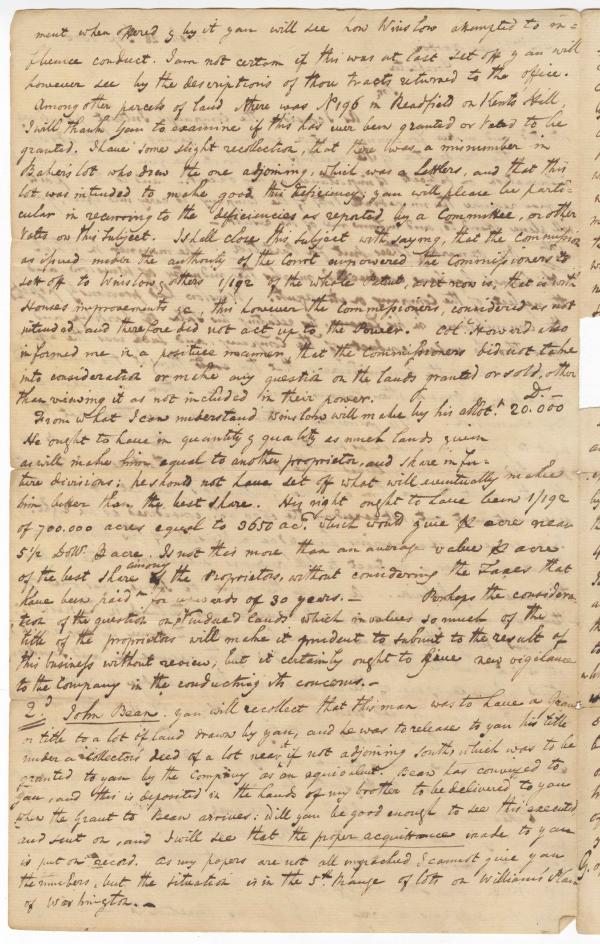 ment when opened & by it you will see how Winslow attempted to in=
fluence conduct. I am not certain if this was at last set off & an will
however see by the descriptions of those tracts returned to the office.
Among other parcels of land there was No 196 in Readfield on Kents Hill,
I will thank you to examine if this has ever been granted or Voted to be
granted. I have some slight recollection, that there was a misnumber in
Bakers lot who drew the one adjoining, which was a Settlers, and that this
lot was intended to make good this deficiency, you will please be parti=
cular in recurring to the deficiencies as reported by a Committee, or other
Votes on this Subject. I shall close this Subject with saying, that the Commission
as issued under the authority of the Court empowered the Commissioners to
set off to Winslow & others 1/192 of the whole Patent, as it now is, that is with
Houses improvements &c this however the Commissioners, considered as not
intended and therefore did not act up to, the Power. Col. Howard also
informed me in a positive manner, that the Commissioners did not take
into consideration or make any question on the lands granted or sold, other
than viewing it as not included in their power.
From what I can understand Winslow will make by his allot.t 20.000 D.
He ought to have in quantity & quality as much lands given
as will make him equal to another proprietor, and share in fu=
ture divisions; he should not have set off what will eventually make
him better than the best share. His right ought to have been 1/192
of 700.000 acres equal to 3650 ac.s which would give ⅌ acre near
5 1/2 Doll.s ⅌ acre. Is not this more than an average value ⅌ acre
of the best share among the Proprietors, without considering the Taxes that
have been paid for upwards of 30 years. — Perhaps the considera
tion of the question on undivided Lands which involves so much of the
title of the proprietors will make it prudent to submit to the result of
this business without review, but it certainly ought to give new vigilance
to the Company in the conducting its concerns. —
2.d John Bean. you will recollect that this man was to have a Grant
or title to a lot of land drawn by you, and he was to release to you his title
under a Collectors deed of a lot near it if not adjoining South, which was to be
granted to you by the Company as an equivalent. Bean has conveyed to
you, and this is deposited in the hands of my brother to be delivered to you
when the Grant to Bean arrives: Will you be good enough to see this executed
and sent on, and I will see that the proper acquittance made to you
is put on record. as my papers are not all unpacked I cannot give you
the numbers, but the situation is in the 5.th Range of lots on Williams's Plan
of Washington. —
G.